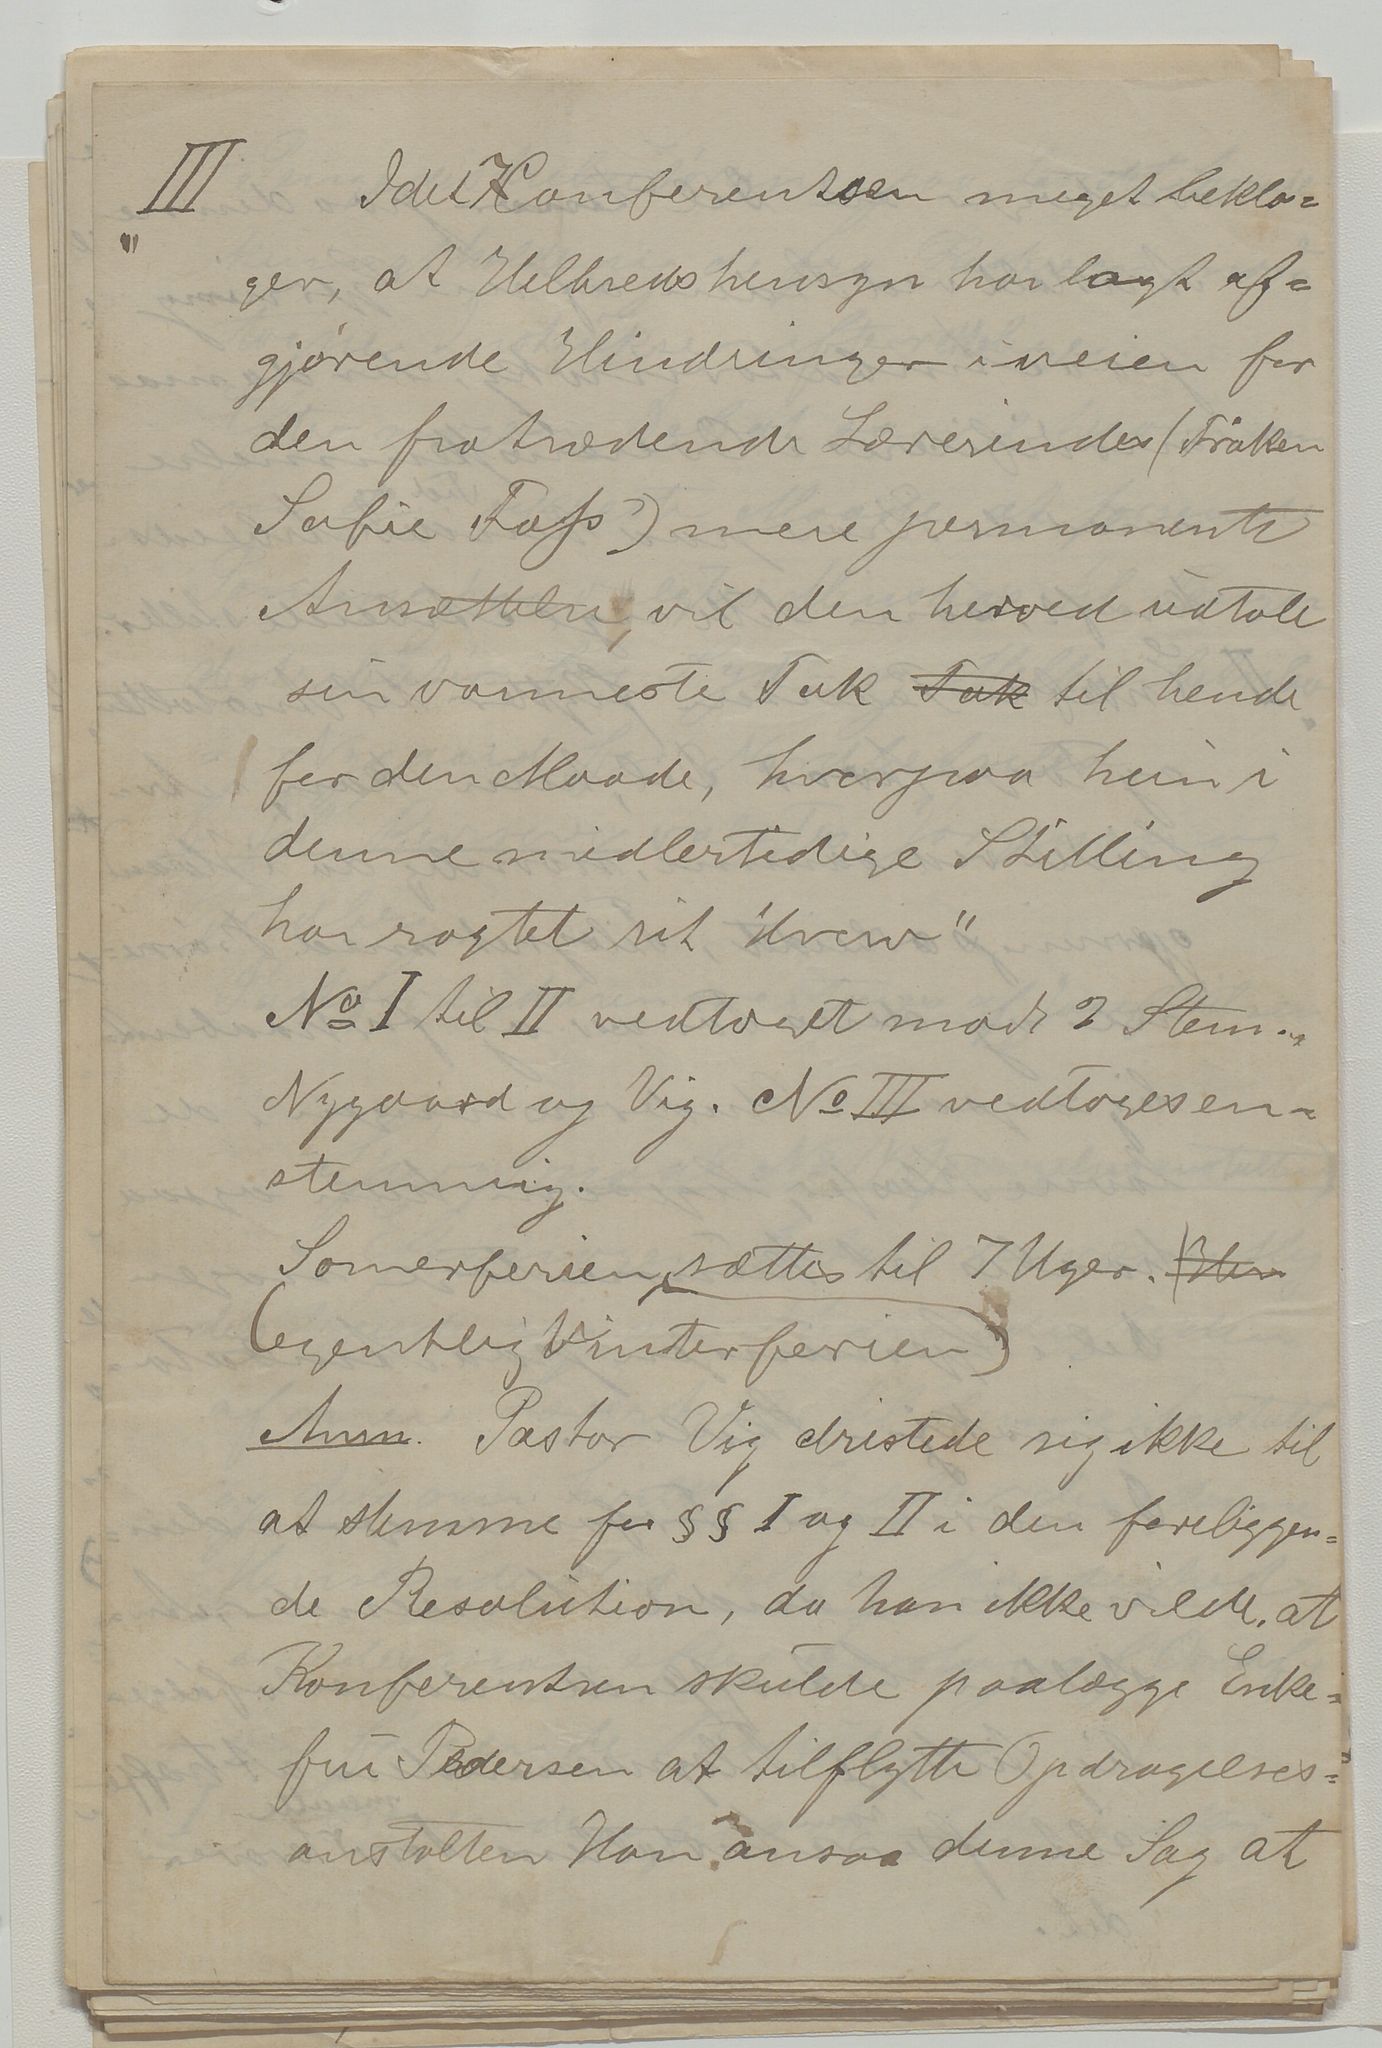 III Idet Konferentsen meget bekla=
"
ger, at Helbredshensyn har lagt af=
gjørende Hindringer i veien for
den fratrædende Lærerindes (Frøken
Sofie Foss') mere permanente
Ansættelse, vil den herved udtale
sin varmeste Tak Tak til hende
for den Maade, hvorpaa hun i
denne midlertidige Stilling
har røgtet sit "hverv"
No I til II vedtaget mod 2 Stem.
Nygaard og Vig. No III vedtoges en=
stemmig.
Somerferien sættes til 7 Uger.
(egentlig Vinterferien)
Anm. Pastor Vig dristede sig ikke til
at stemme for §§ I og II i den foreliggen=
de Resolution, da han ikke vilde, at
Konferentsen skulde paalægge Enke=
fru Pedersen at tilflytte Opdragelses=
anstalten Han ansaa denne Sag at